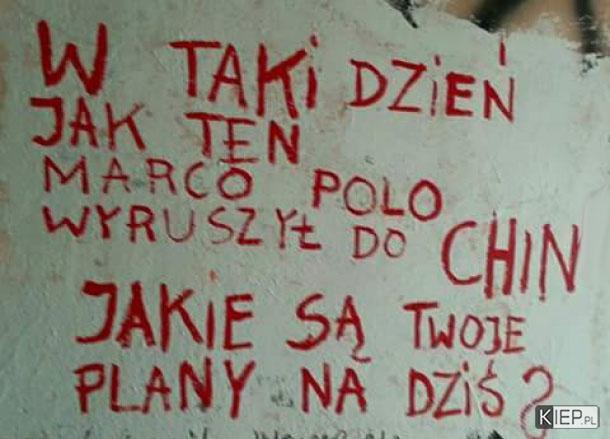 W TAKi DZiEŃ
JAK TEN
MARCO POLO
WYRUSZYŁ DO CHIN
JAKiE SĄ TWOJE
PLANY NA DZiŚ?
KIEP.PL